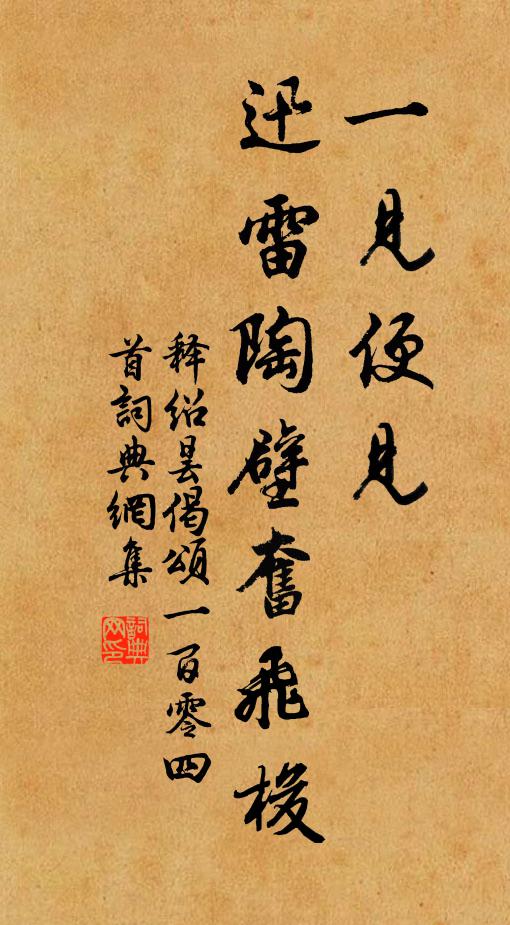 一見便見
迅雷陶壁奮飛梭
釋紹曇偈頌一百零四
首詞典網集
詞典
网印